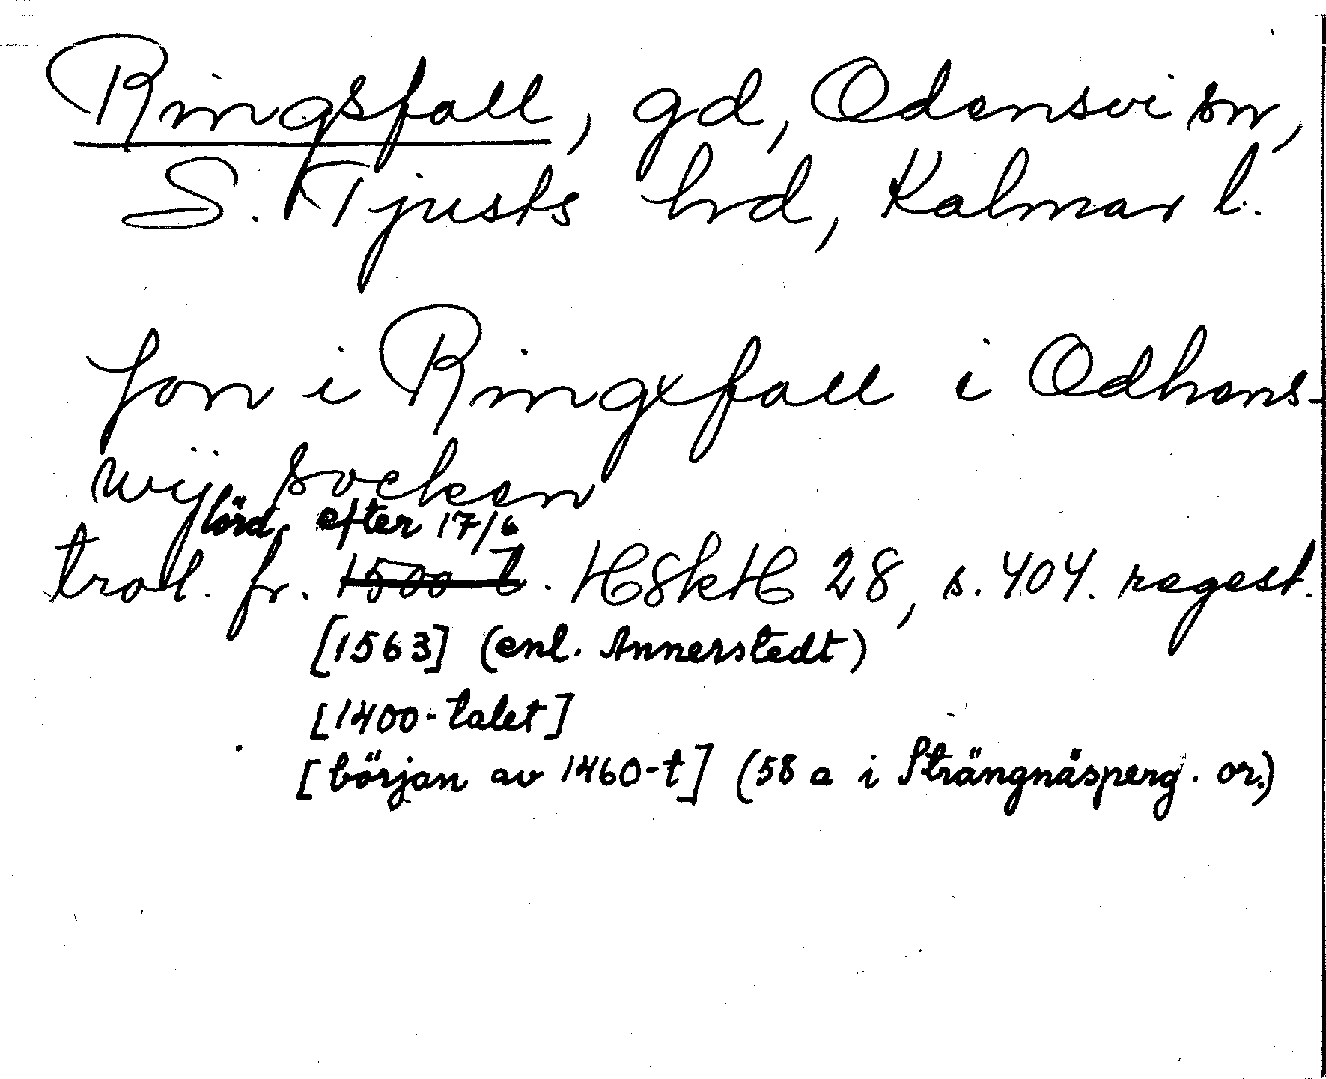 Ringsfall, gd, Odensvi sn,
S. Tjusts hrd, Kalmar l.
Jon i Ringxfall i Odhens-
wij socken
lörd. efter 17/6
trol. fr. 1500-t. HSkH 28, s. 404. regest.
[1563] (enl. Annerstedt)
[1400-talet]
[början av 1460-t] (58 a i Strängnäsperg. or.)